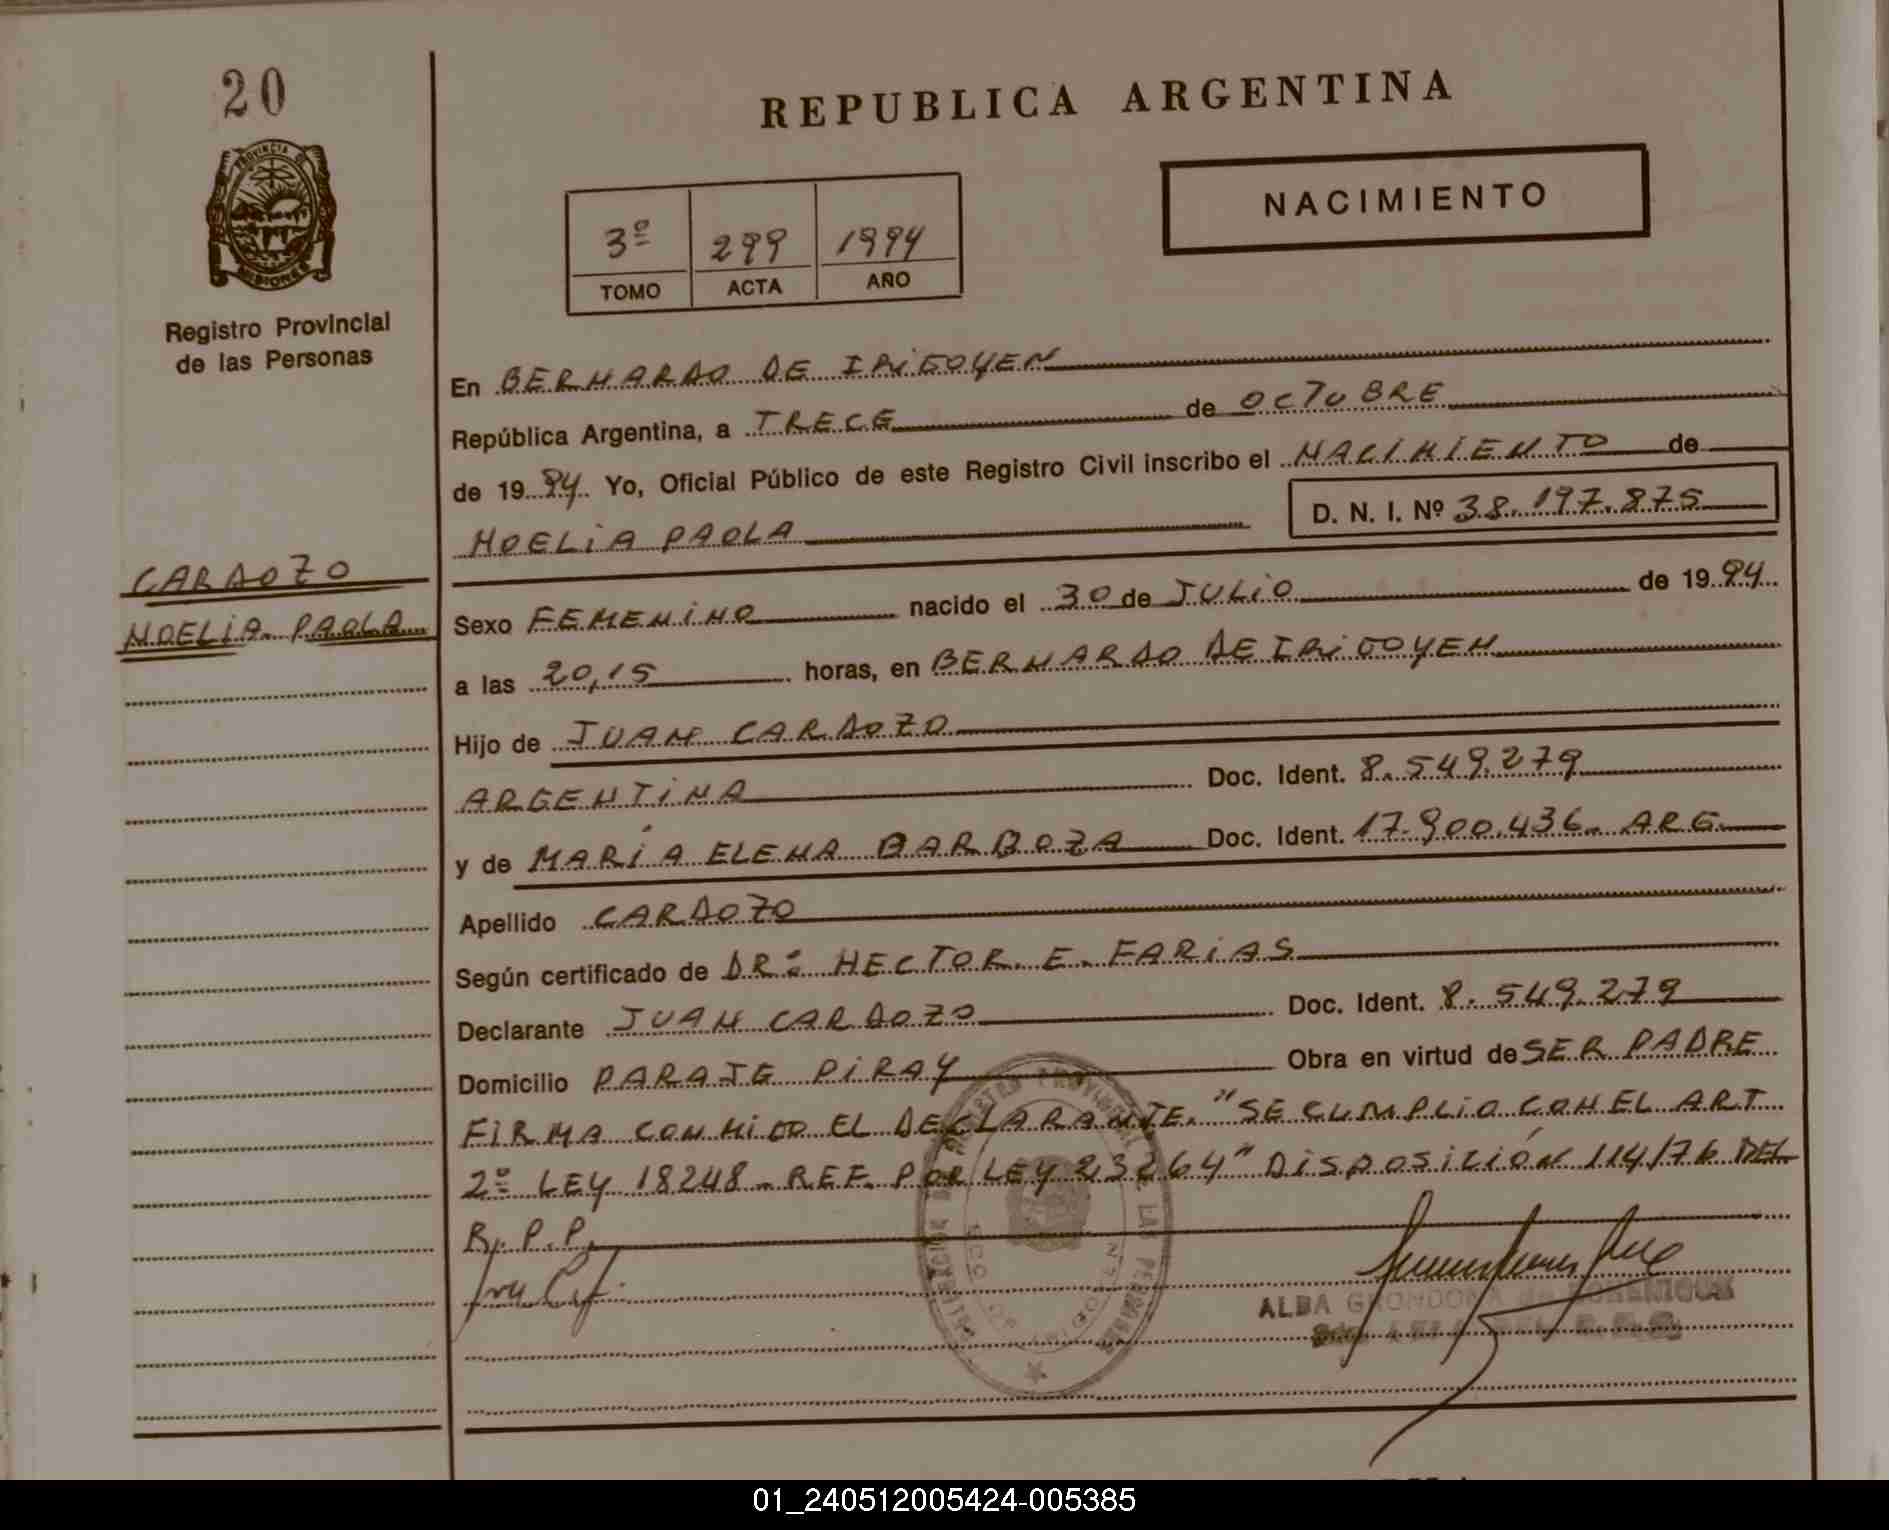 20
PROVINCIA DE
MISIONES
Registro Provincial
de las Personas
CARDOZO
NOELIA PAOLA
REPUBLICA ARGENTINA
NACIMIENTO
3º 299 1994
TOMO ACTA AÑO
En BERNARDO DE IRIGOYEN
República Argentina, a TRECE de OCTUBRE
de 1994 Yo, Oficial Público de este Registro Civil inscribo el NACIMIENTO de
NOELIA PAOLA D. N. I. Nº 38.197.875
Sexo FEMENINO nacido el 30 de JULIO de 1994
a las 20,15 horas, en BERNARDO DE IRIGOYEN
Hijo de JUAN CARDOZO
ARGENTINA Doc. Ident. 8.549.279
y de MARÍA ELENA BARBOZA Doc. Ident. 17.900.436. ARG.
Apellido CARDOZO
Según certificado de DR: HECTOR. E. FARIAS
Declarante JUAN CARDOZO Doc. Ident. 8.549.279
Domicilio PARAJE PIRAY Obra en virtud de SER PADRE
FIRMA CONMIGO EL DECLARANTE. "SE CUMPLIO CON EL ART
2º LEY 18248 - REF. POR LEY 23264" DISPOSICIÓN 114/76 DEL
R. P. P.
ALBA GRONDONA de
01_240512005424-005385